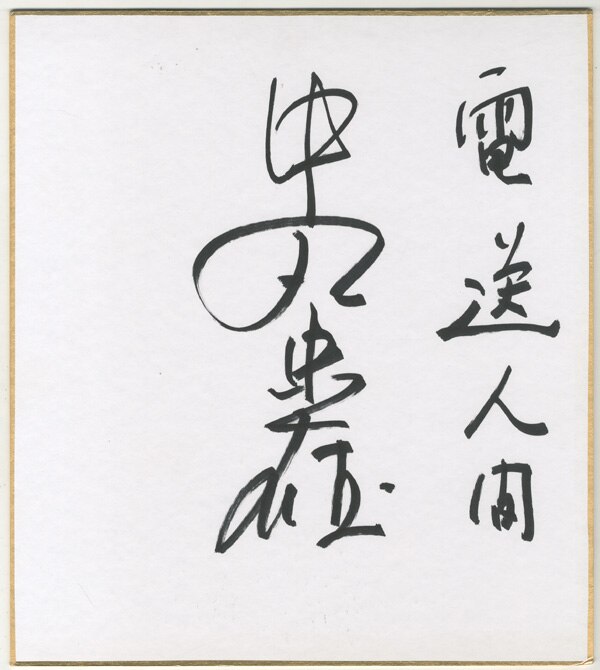 電送人間
中丸忠雄